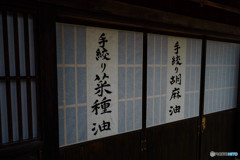 手絞り胡麻油
手絞り菜種油